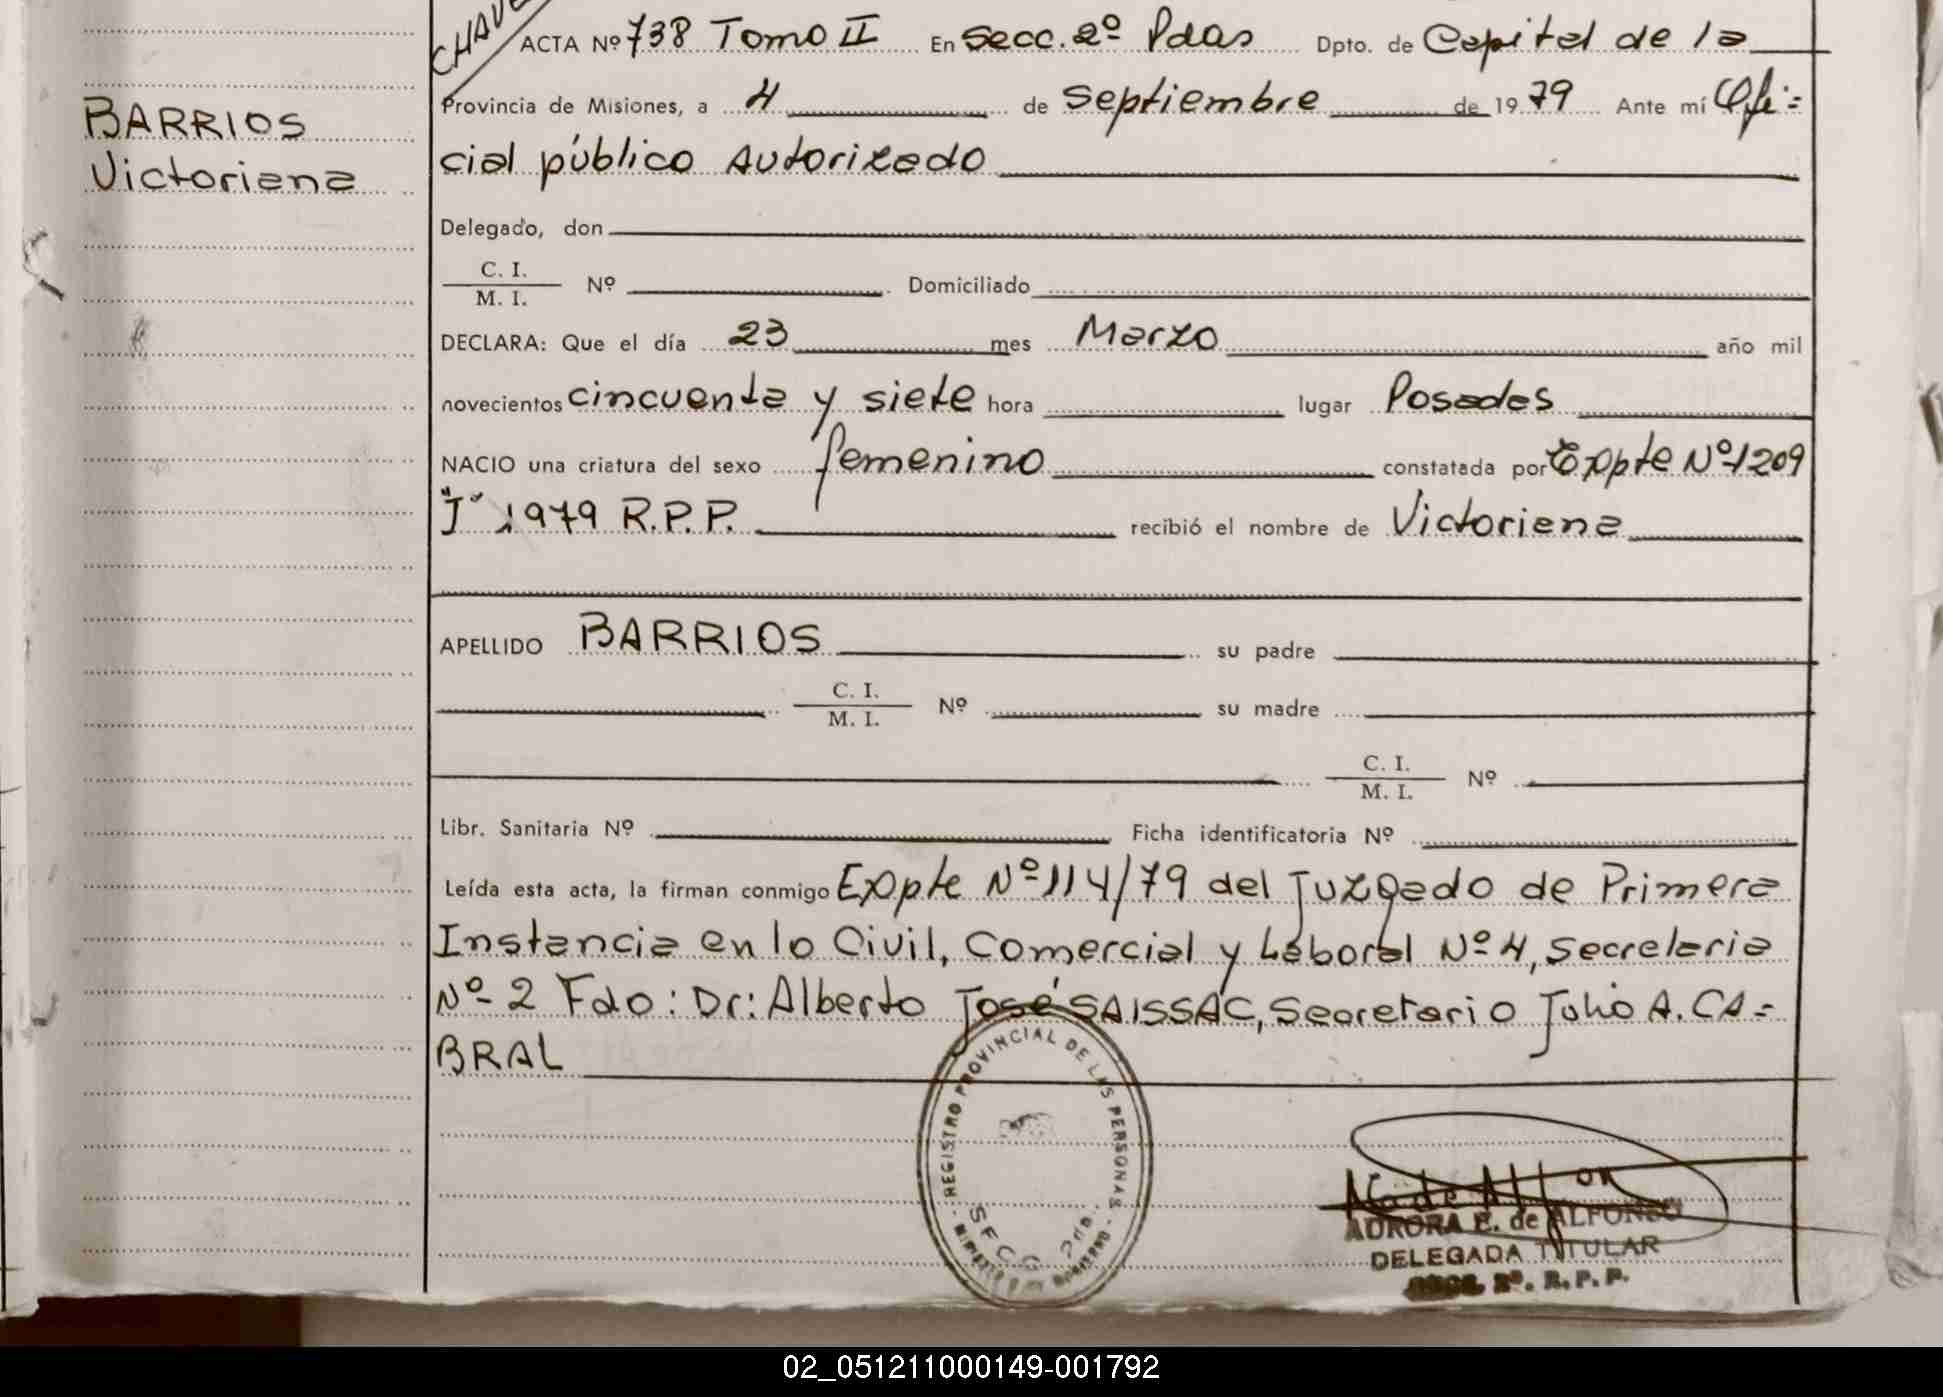 CHAVE
ACTA Nº 738 Tomo II En Secc. 2º Pdas Dpto. de Capital de la
BARRIOS
Victoriana
Provincia de Misiones, a 4 de Septiembre de 1979 Ante mí Ofi=
cial público Autorizado
Delegado, don
C. I.
M. I. Nº Domiciliado
DECLARA: Que el día 23 mes Marzo año mil
novecientos cincuenta y siete hora lugar Posadas
NACIO una criatura del sexo femenino constatada por Expte Nº 1209
"J" 1979 R.P.P. recibió el nombre de Victoriana
APELLIDO BARRIOS su padre
C. I.
M. I. Nº su madre
C. I.
M. I. Nº
Libr. Sanitaria Nº Ficha identificatoria Nº
Leída esta acta, la firman conmigo Expte Nº 114/79 del Juzgado de Primera
Instancia en lo Civil, Comercial y Laboral Nº 4, Secretaria
Nº 2 Fdo: Dr: Alberto José SAISSAC, Secretario Julio A. CA=
BRAL
REGISTRO PROVINCIAL DE LAS PERSONAS
SECC. 2da.
AURORA E. de ALFONSO
DELEGADA TITULAR
SECC. 2º. R.P.P.
02_051211000149-001792